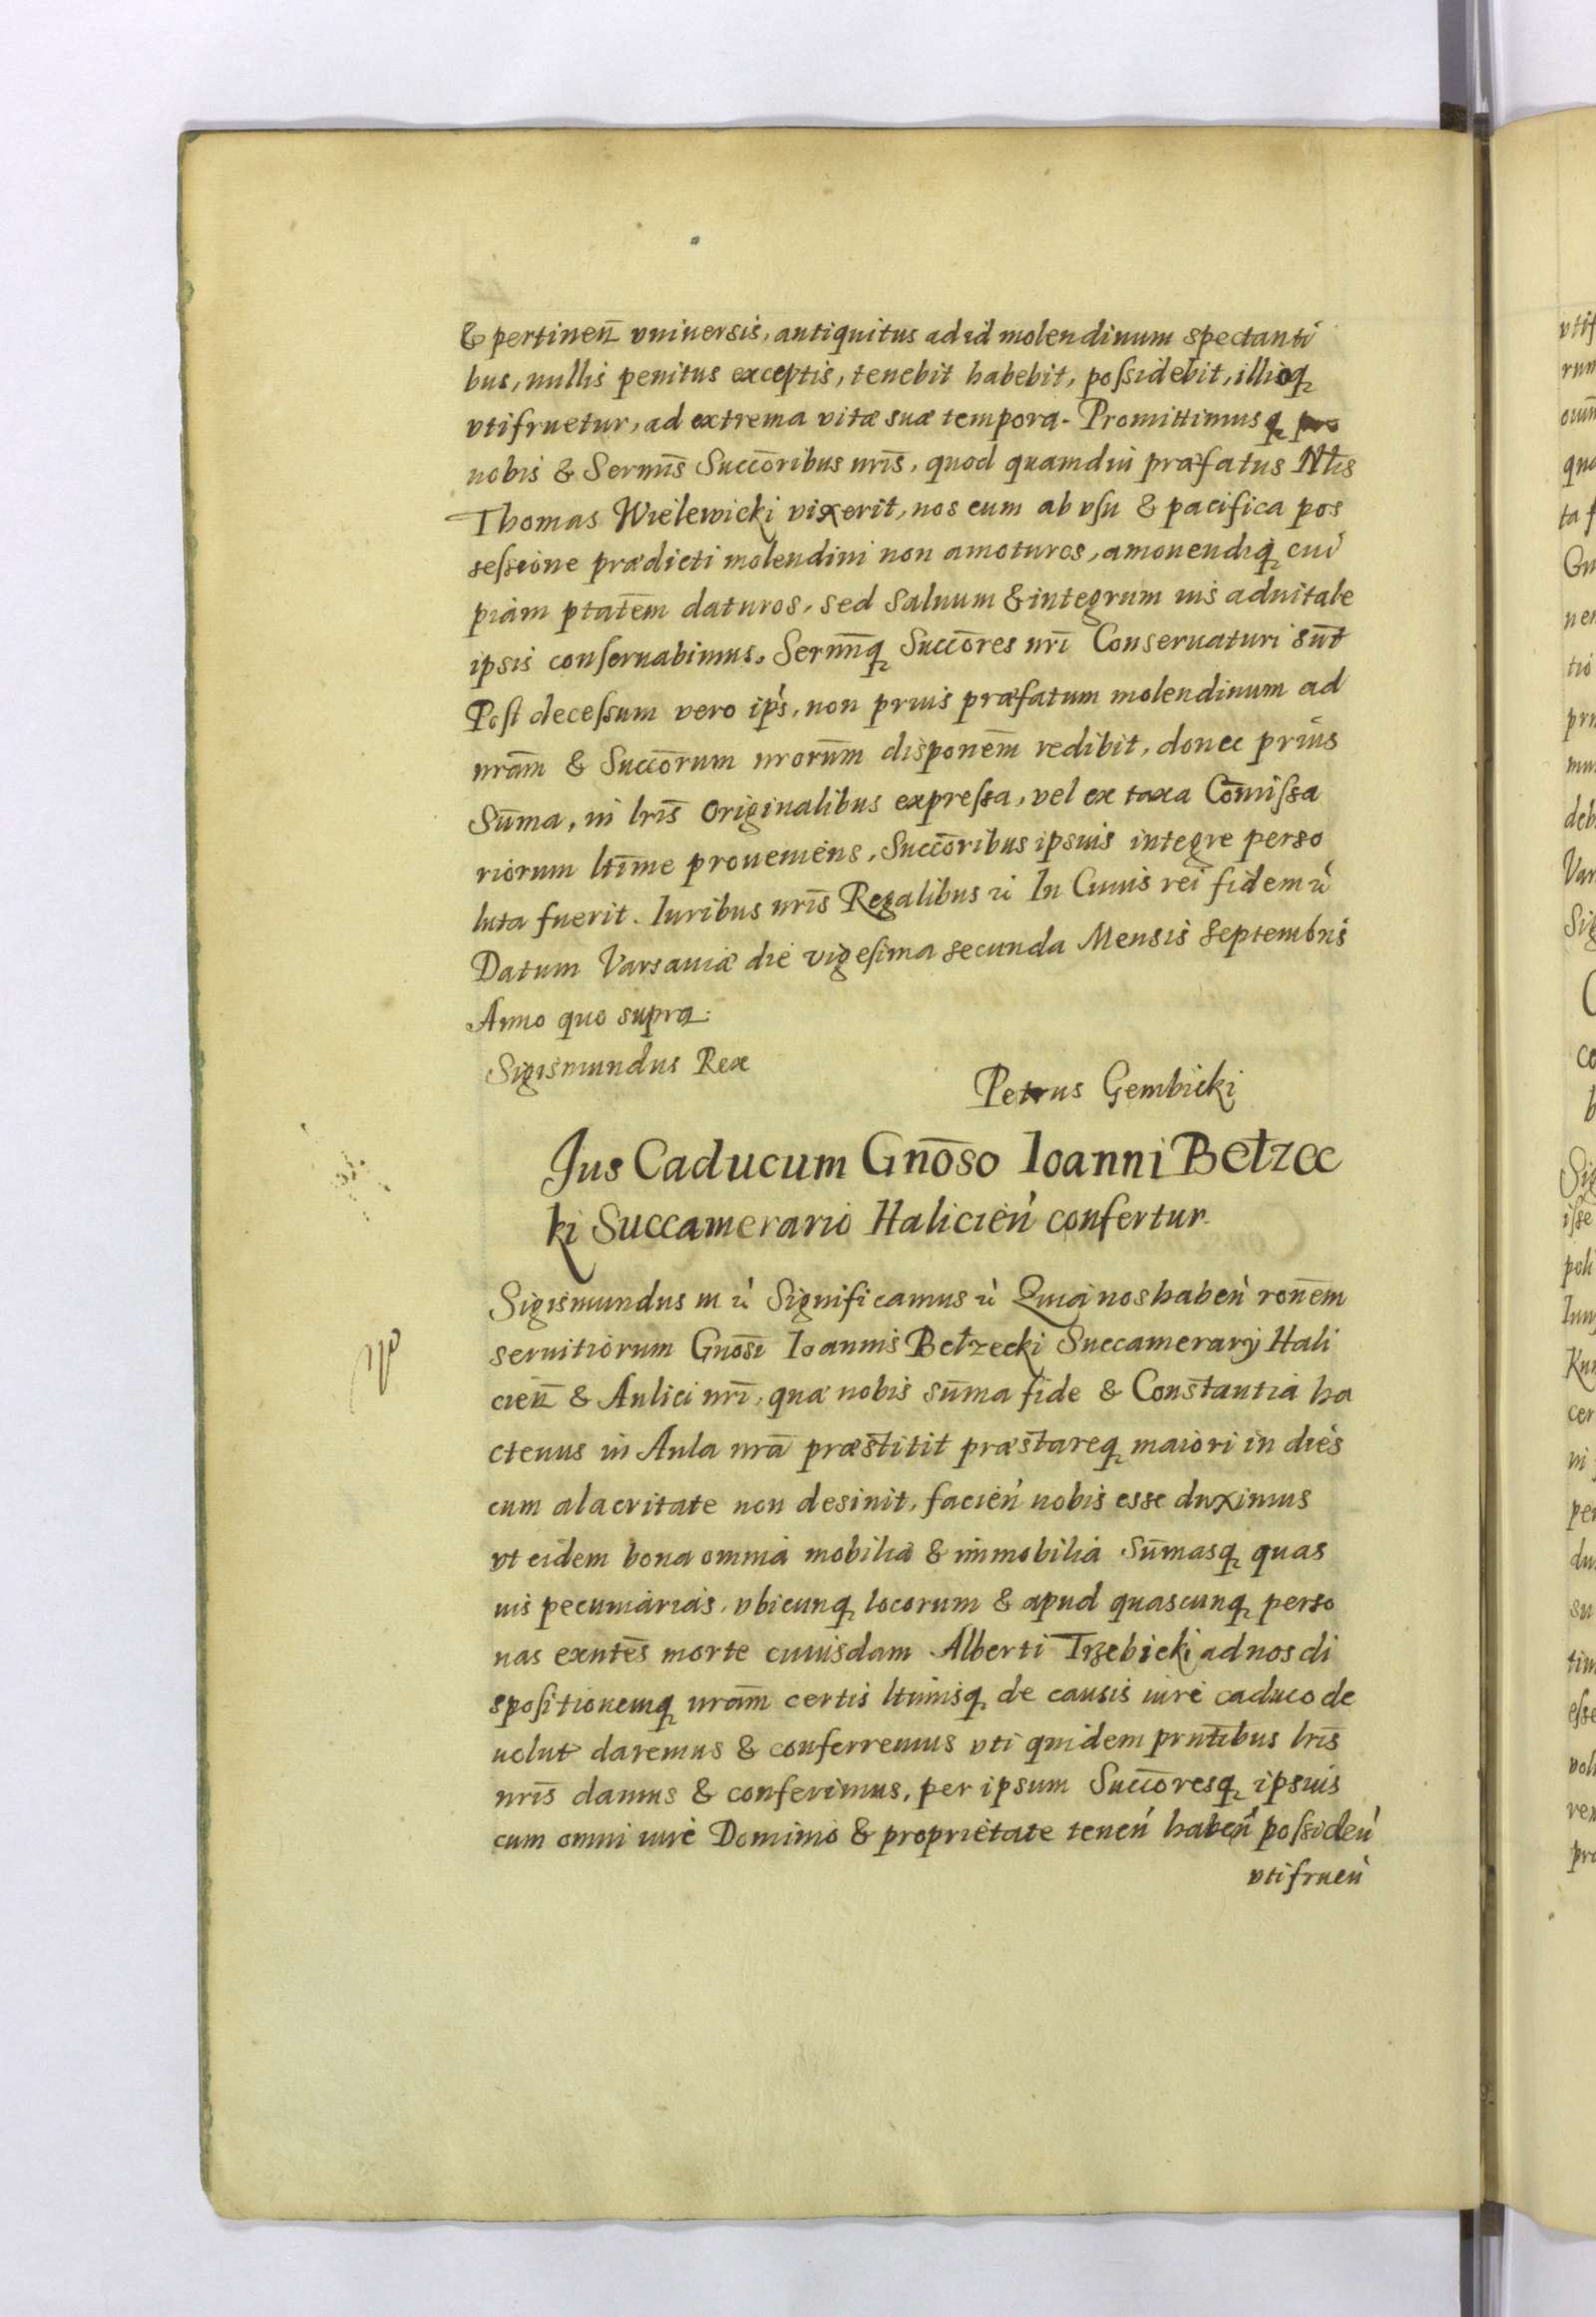 & pertineñ vniuersis, antiquitus ad id molendinum spectanti
bus, nullis penitus exceptis, tenebit habebit, possidebit, illioq
vtifruetur, ad extrema vitæ suæ tempora. Promittimusq pro
nobis & Sermis̄ Succōribus nrīs, quod quamdiu præfatus Nłis
Thomas Wielewicki vixerit, nos eum ab vsu & pacifica pos
sessione prædicti molendini non amoturos, amouendiq cui
piam ptatēm daturos, sed saluum & integrum ius aduitale
ipsis conseruabimus. Sermīq Succōres nrī Conseruaturi sūt
Post decessum vero ips̀, non prius præfatum molendinum ad
nrām & Succōrum nrorūm disponēm redibit, donec prius
Sūma, in lrīs originalibus expressa, vel ex taxa Cōmissa
riorum ltīme proueniens, Succōribus ipsius integre perso
luta fuerit. Iuribus nrīs Regalibus ù In Cuius rei fidem ù
Datum Varsauiæ die vigesima secunda Mensis Septembris
Anno quo supra.
Sigismundus Rex
Petrus Gembicki
Jus Caducum Gnōso Ioanni Bełzec
ki Succamerario Halicień confertur.
Sigismundus III ù Significamus ù Quia nos habeǹ ronēm
seruitiorum Gnōsi Ioannis Bełzecki Succamerarij Hali
cień & Aulici nrī, quæ nobis sūma fide & Constantia ha
ctenus in Aula nrā præstitit præstareq maiori in dies
cum alacritate non desinit, facień nobis esse duximus
vt eidem bona omnia mobilia & immobilia Sūmasq quas
uis pecuniarias, vbicunq locorum & apud quascunq perso
nas exntēs morte cuiusdam Alberti Trzebicki ad nos di
spositionemq nrām certis ltimisq de causis iure caduco de
uolut daremus & conferremus vti quidem prntībus lrīs
nrīs damus & conferimus, per ipsum Succōresq ipsius
cum omni iure Dominio & proprietate teneń habeń possideń
vtifrueń